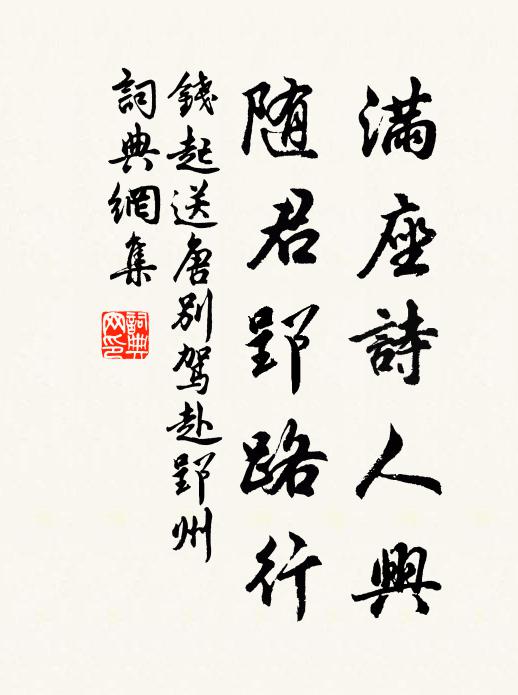 满座詩人興
随君郢路行
錢起送唐别駕赴郢州
詞典網集
詞典网印